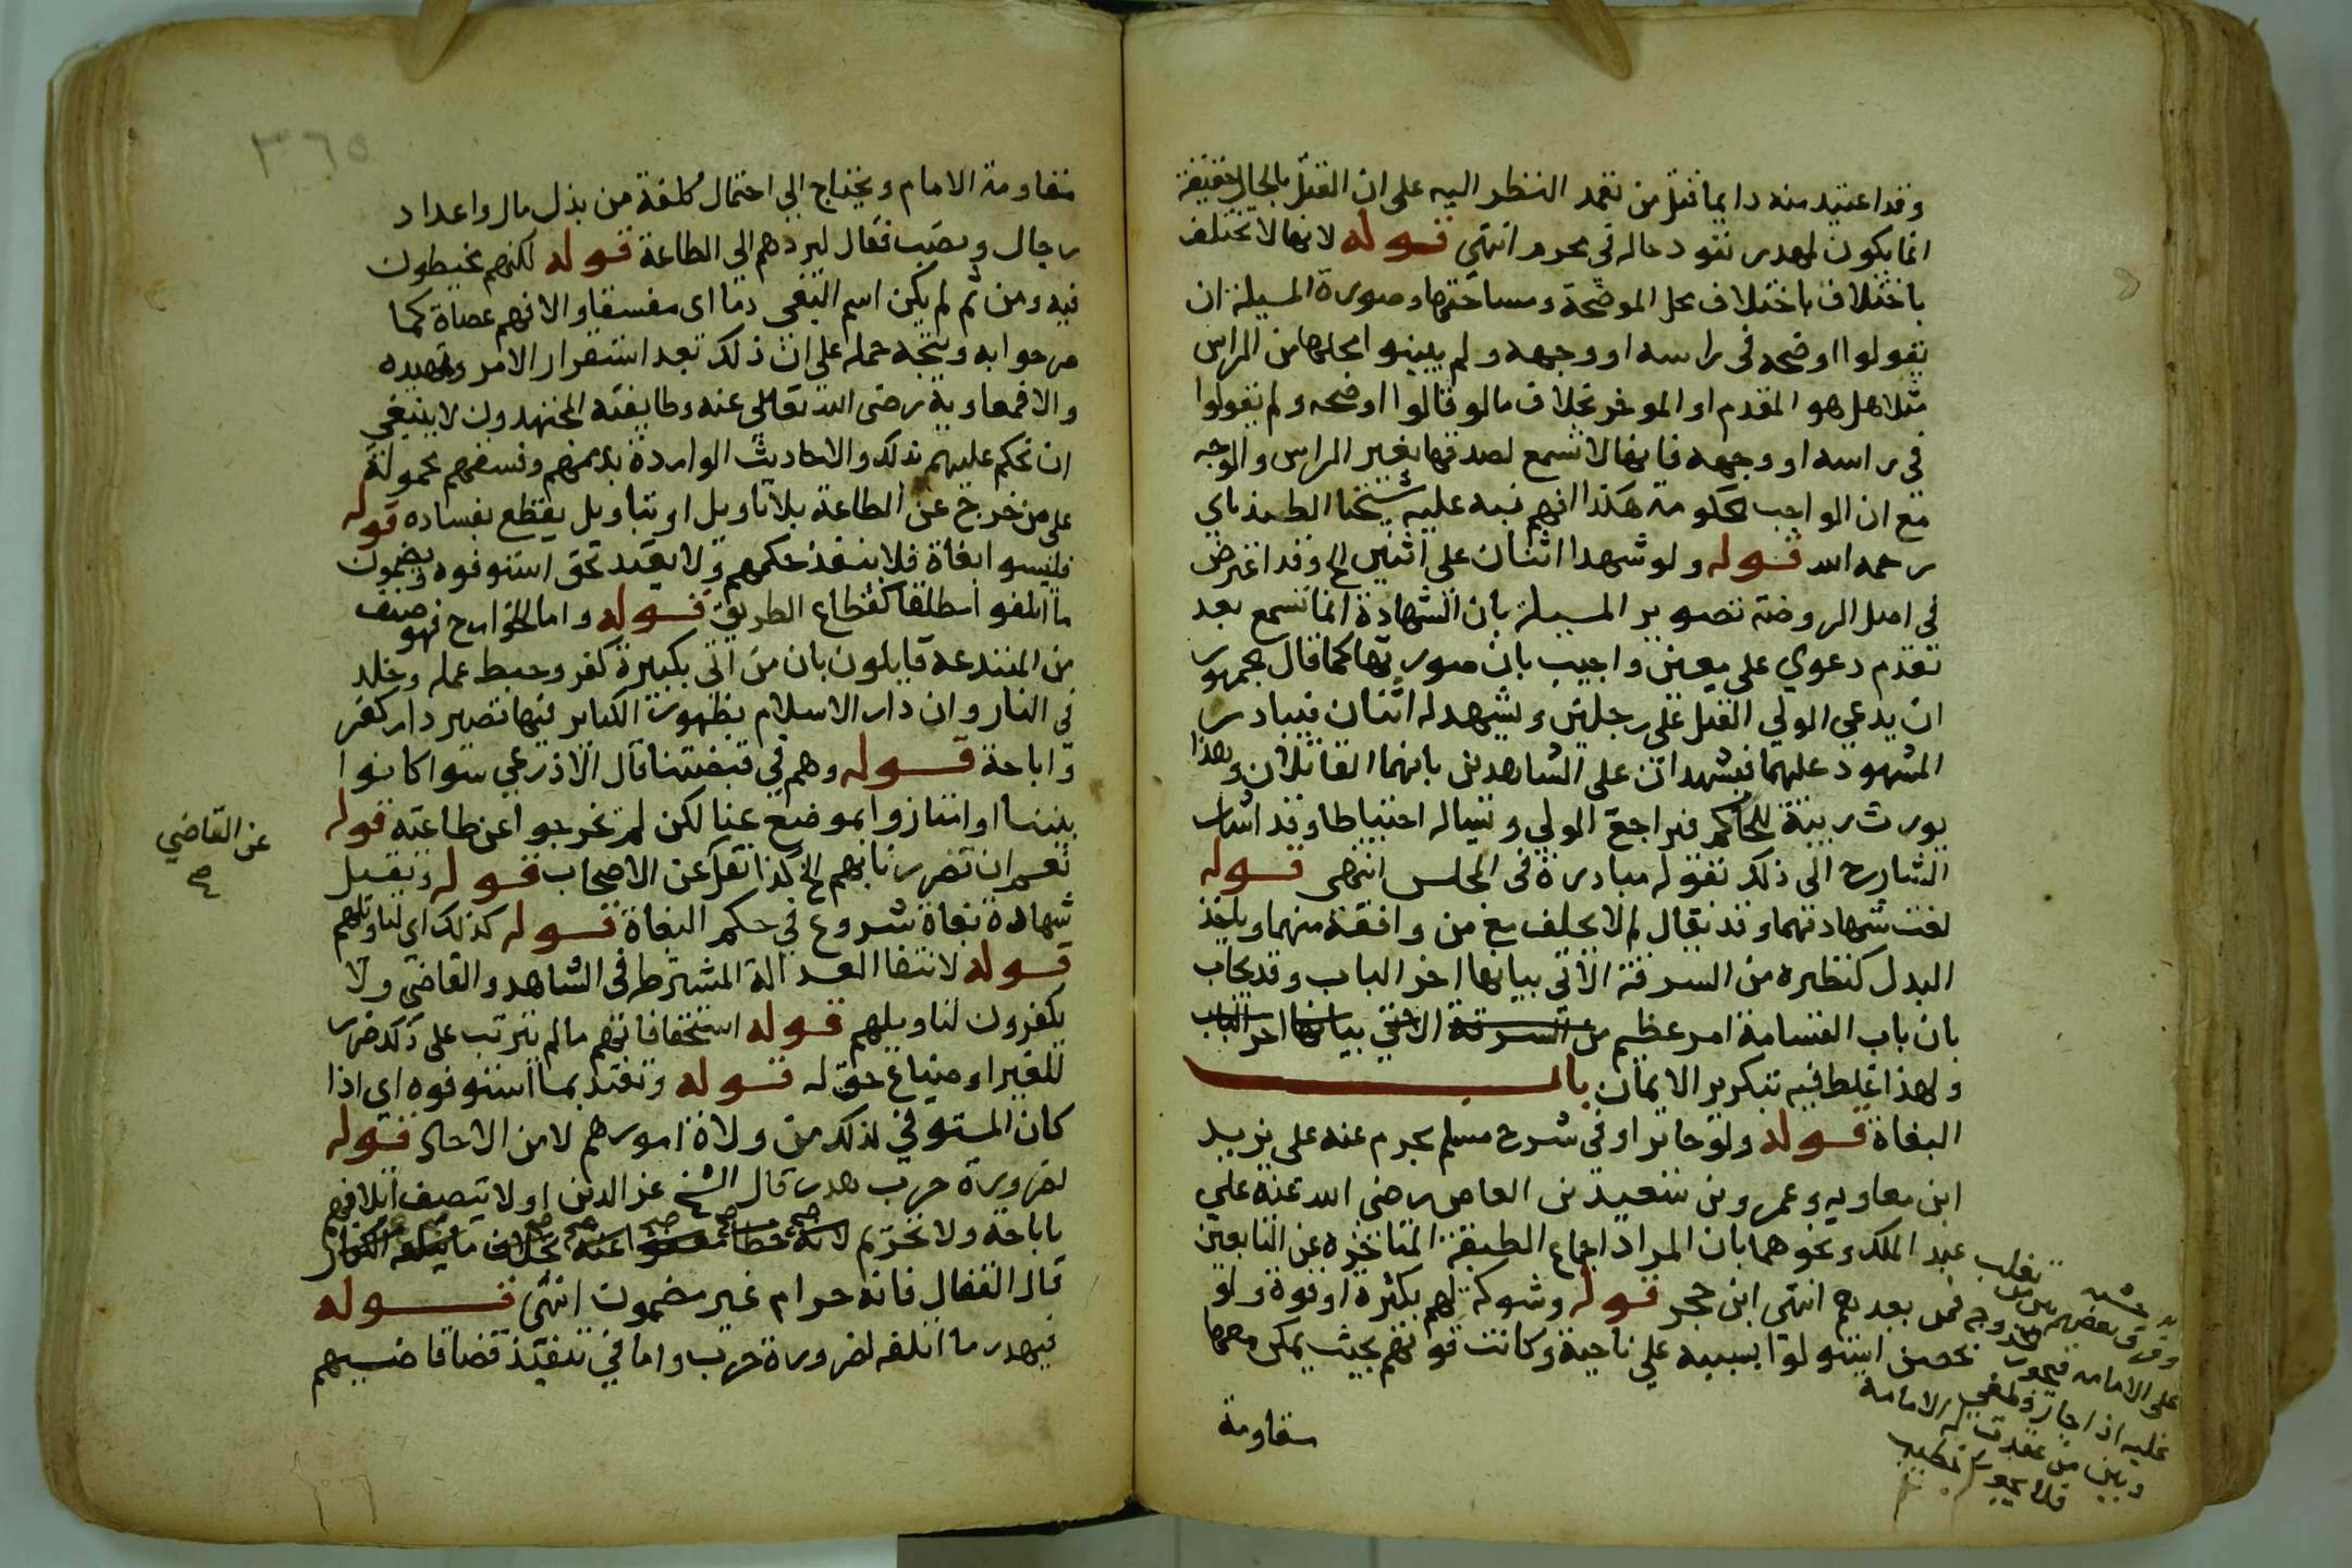 وقد اعتيد منه دايما قتل من تعمد النظر اليه على ان القتل بالحال حقيقة
انما يكون لمهدر نفود حاله في محرم انتهى قوله لانها لا تختلف
باختلاف باختلاف محل الموضحة ومساحتها وصورة المسيلة ان
يقولوا اوضحه في راسه او وجهه ولم يبينوا محلها من الراس
مثلا هل هو المقدم او الموخر بخلاف ما لو قالوا اوضحه ولم يقولوا
في راسه او وجهه فانها لا تسمع لصدقها بغير الراس والوجه
مع ان الواجب حكومة هكذا افهم نبه عليه شيخنا الطبذباي
رحمه الله قوله ولو شهد اثنان على اثنين الخ وقد اعترض
في اصل الروضة تصوير المسيلة بان الشهادة انما تسمع بعد
تقدم دعوي على معين واجيب بان صورتها كما قال جمهور
ان يدعي الولي القتل على رجلين ويشهد له اثنان فيبادر
المشهود عليهما فيشهدان على الشاهدين بانهما القاتلان وهذا
يورث ريبة للحاكم فيراجع الولي ويساله احتياطا وقد اشار
الشارح الى ذلك بقوله مبادرة في المجلس انتهى قوله
لغت شهادتهما وقد يقال لم لا يحلف مع من وافقه منهما وياخذ
البدل كنظيره من السرقة الاتي بيانها اخر الباب وقد يجاب
بان باب القسامة امر عظيم من السرقة الاتي بيانها اخر الباب
ولهذا غلظ فيه بتكرير الايمان باب
البغاة قوله ولو جايرا وفي شرح مسلم يحرم عنه على يزيد
ابن معاويه وعمرو بن سعيد بن العاص رضى الله عنه علي
عبد الملك ونحوهما بان المراد اجماع الطبقة المتاخرة عن التابعين
فمن بعدهم انتهى ابن حجر قوله وشوكة لهم بكثرة او قوة ولو
بحصن استولوا بسببه علي ناحية وكانت قوتهم بحيث يمكن معها
مقاومة
وفرق بعضهم بين من تغلب
على الامامه فيجوز الخروج
عليه اذا جار وطغى
وبين من عقدت له الامامة
فلا يجوز
٣٦٥
مقاومة الامام ويحتاج الي احتمال كلفة من بذل مال واعداد
رجال ونصب قتال ليردهم الي الطاعة قوله لكنهم مخطون
فيه ومن ثم لم يكن اسم البغي ذما اى مفسقا والا فهم عصاة كما
مر جوابه ويتجه حمله على ان ذلك بعد استقرار الامر وتمهيده
والا فمعاوية رضى الله تعالى عنه وطايفته المجتهدون لا ينبغي
ان نحكم عليهم بذلك والاحاديث الواردة بذمهم وفسقهم محمولة
على من خرج عن الطاعة بلا تاويل او بتاويل يقطع بفساده قوله
فليسوا بغاة فلا ينفذ حكمهم ولا يعتد بحق استوفوه ويضمون
ما اتلفوا مطلقا كقطاع الطريق قوله واما الخوارج فهو صنف
من المبتدعة قايلون بان من اتى بكبيرة كفر وحبط عمله وخلد
في النار وان دار الاسلام بظهور الكباير فيها تصير دار كفر
واباحة قوله وهم في قبضتنا قال الاذرعي سوا كانوا
بيننا او امتازوا بموضع عنا لكن لم يخرجوا عن طاعته قوله
نعم ان تضررنا بهم الخ كذا نقل عن الاصحاب قوله وتقبل
شهادة بغاة شروع في حكم البغاة قوله كذلك اى لتاويلهم
قوله لانتفا العدالة المشترط في الشاهد والقاضي ولا
يكفرون لتاويلهم قوله استخفافا بهم ما لم يترتب على ذلك ضرر
للغير او ضياع حق له قوله ونعتد بما استوفوه اي اذا
كان المستوفي لذلك من ولاة امورهم لا من الاحاد قوله
لضرورة حرب هدر قال الشيخ عز الدين ولا يتصف اتلافهم
باباحة ولا تحريم لانه خطا معفو عنه بخلاف ما يتلفه الكفار
قال القفال فانه حرام غير مضمون انتهى قوله
فيهدر ما اتلفه لضرورة حرب واما في تنفيذ قضا قاضيهم
عن القاضي
صح